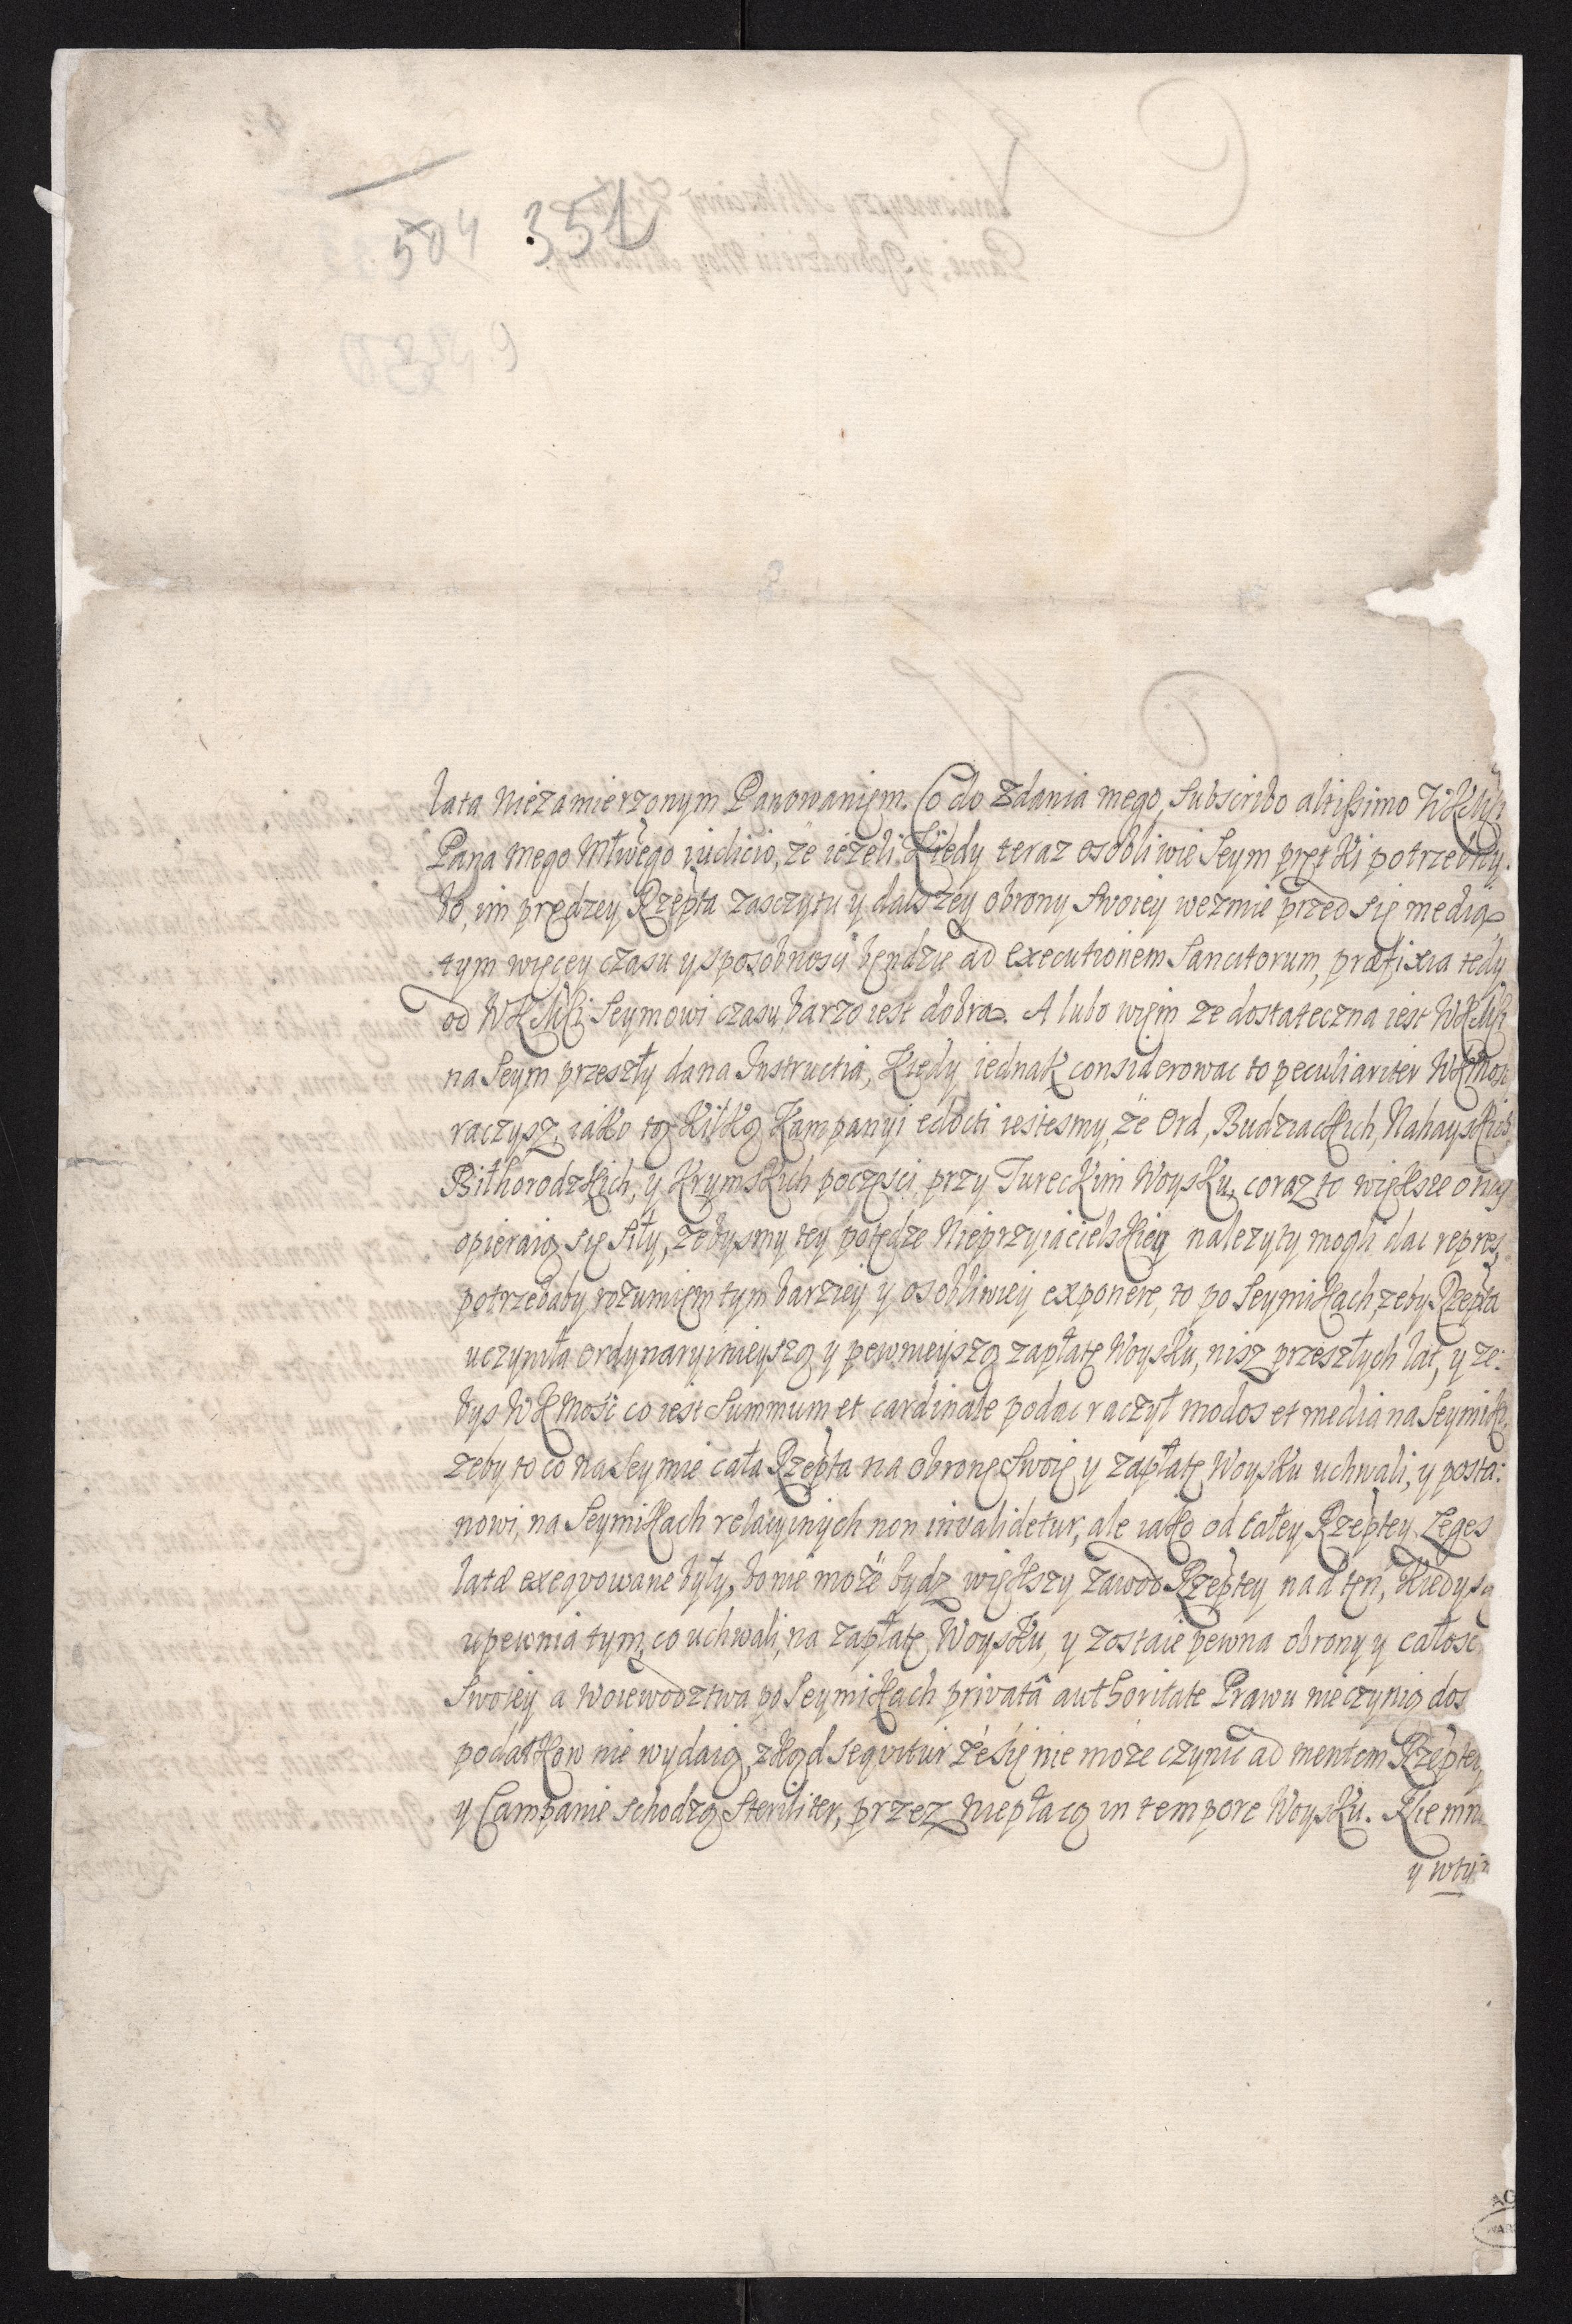 504 351
lata niezamierzonym Panowaniem. Co do Zdania mego, Subscribo altissimo WKMsći
Pana mego Młwego iudicio, że ieżeli kiedy teraz osobliwie Seym prętki potrzebny.
bo, im prędzey Rzepta zasczytu y dalszey obrony swoiey weżmie przed się media
tym więcey czasu y sposobnosci będzie ad executionem Sancitorum, præfixia tedy
od WKMsći Seymowi czasu barzo iest dobra. A lubo wiem ze dostateczna iest WKMsći
na Seym przeszły dana Instructia, kiedy iednak considerowac to peculiariter WKMość
raczysz, iako tą kilką Kampanyi edocti iestesmy, że Ord, Budziackich, Nahayskich
Biłhorodzkich, y Krymskich poczęsci przy Tureckim Woysku, coraz to większe
opieraią się siły, żebysmy tey potędze Nieprzyiacielskiey należyty mogli dac repres,
potrzebaby rozumiem tym barziey y osobliwiey exponere, to po Seymikach, zeby Rzepta
uczyniła ordynaryinieyszą y pewnieyszą zapłatę Woysku, nisz przeszłych lat, y ze:
bys WKMość co iest Summum et cardinale podac raczył modos et media na Seymiki,
zeby to co na Seymie cała Rzepta na obronę swoię y zapłatę Woysku uchwali, y posta:
nowi, na Seymikach relacyinych non invalidetur, ale iako od całey Rzeptey Leges
latæ exeqvowane były, bo nie może bydz większy zawod Rzeptey nad ten, kiedy są
upewnia tym, co uchwali, na zapłatę Woysku, y zostaie pewna obrony y całosc
swoiey a Woiewodztwa po Seymikach privatâ authoritate Prawu nie czynią dos
podatkow nie wydaią, zkąd seqvitur że się nie może czynic ad mentem Rzeptey,
y Campanie schodzą steriliter, przez niepłacą in tempore Woysku. Nie mni
y wty